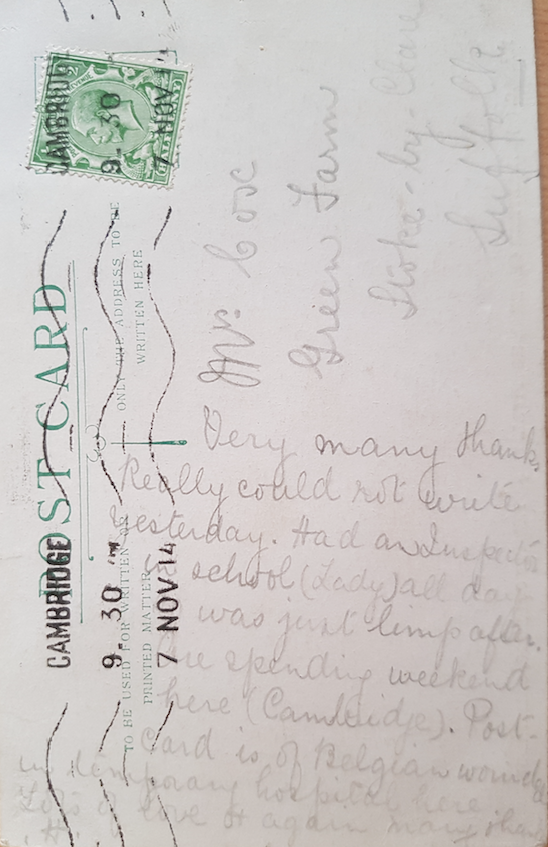 POST CARD
TO BE USED FOR WRITTEN OR
PRINTED MATTER
ONLY THE ADDRESS TO BE
WRITTEN HERE
CAMBRIDGE
9. 30
7 NOV 14
CAMBRIDG
9. 30
7 NOV 14
HALFPENNY
Mrs Cox
Green Farm
Stoke-by-Clare
Suffolk
Very many thanks
Really could not write
yesterday. Had an Inspector
in school (Lady) all day
was just limp after.
spending weekend
here (Cambridge). Post-
card is of Belgian wounded
in temporary hospital here
Lots of love & again many thanks
H.